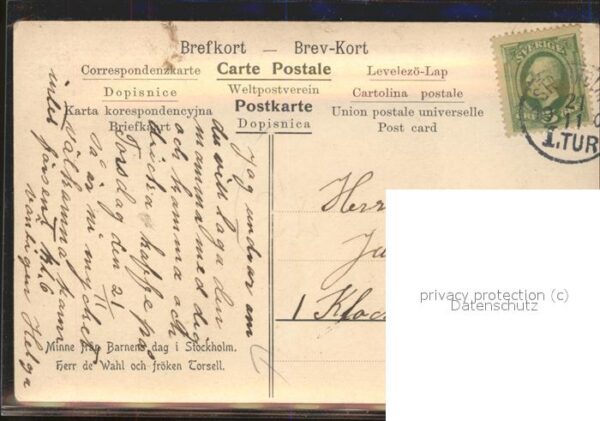 Brefkort — Brev-Kort
Correspondenzkarte Carte Postale Levelező-Lap
Dopisnice Weltpostverein Cartolina postale
Karta korespondencyjna Postkarte Union postale universelle
Briefkaart Dopisnica Post card
SVERIGE
21
11
1.TUR
Jag undrar om
du vill taga din
mamma med dig
och komma och
dricka kaffe på
Torsdag den 21/11
så är ni mycket
välkomna kom
inte försent kl 6
vänligen Helga
Herr
1 Kloc
Minne från Barnens dag i Stockholm.
Herr de Wahl och fröken Torsell.
privacy protection (c)
Datenschutz